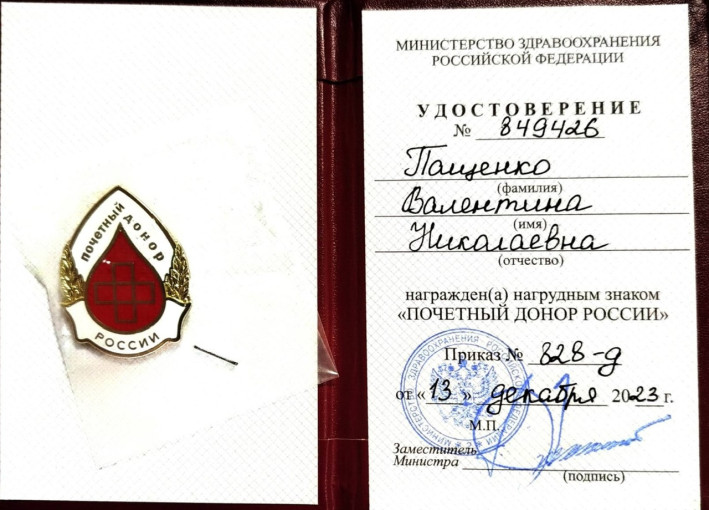 ПОЧЕТНЫЙ ДОНОР
РОССИИ
МИНИСТЕРСТВО ЗДРАВООХРАНЕНИЯ
РОССИЙСКОЙ ФЕДЕРАЦИИ
УДОСТОВЕРЕНИЕ
№ 849426
Пащенко
(фамилия)
Валентина
(имя)
Николаевна
(отчество)
награжден(а) нагрудным знаком
«ПОЧЕТНЫЙ ДОНОР РОССИИ»
Приказ № 828-д
от «13» декабря 2023 г.
М.П.
Заместитель
Министра
(подпись)
МИНИСТЕРСТВО ЗДРАВООХРАНЕНИЯ РОССИЙСКОЙ ФЕДЕРАЦИИ